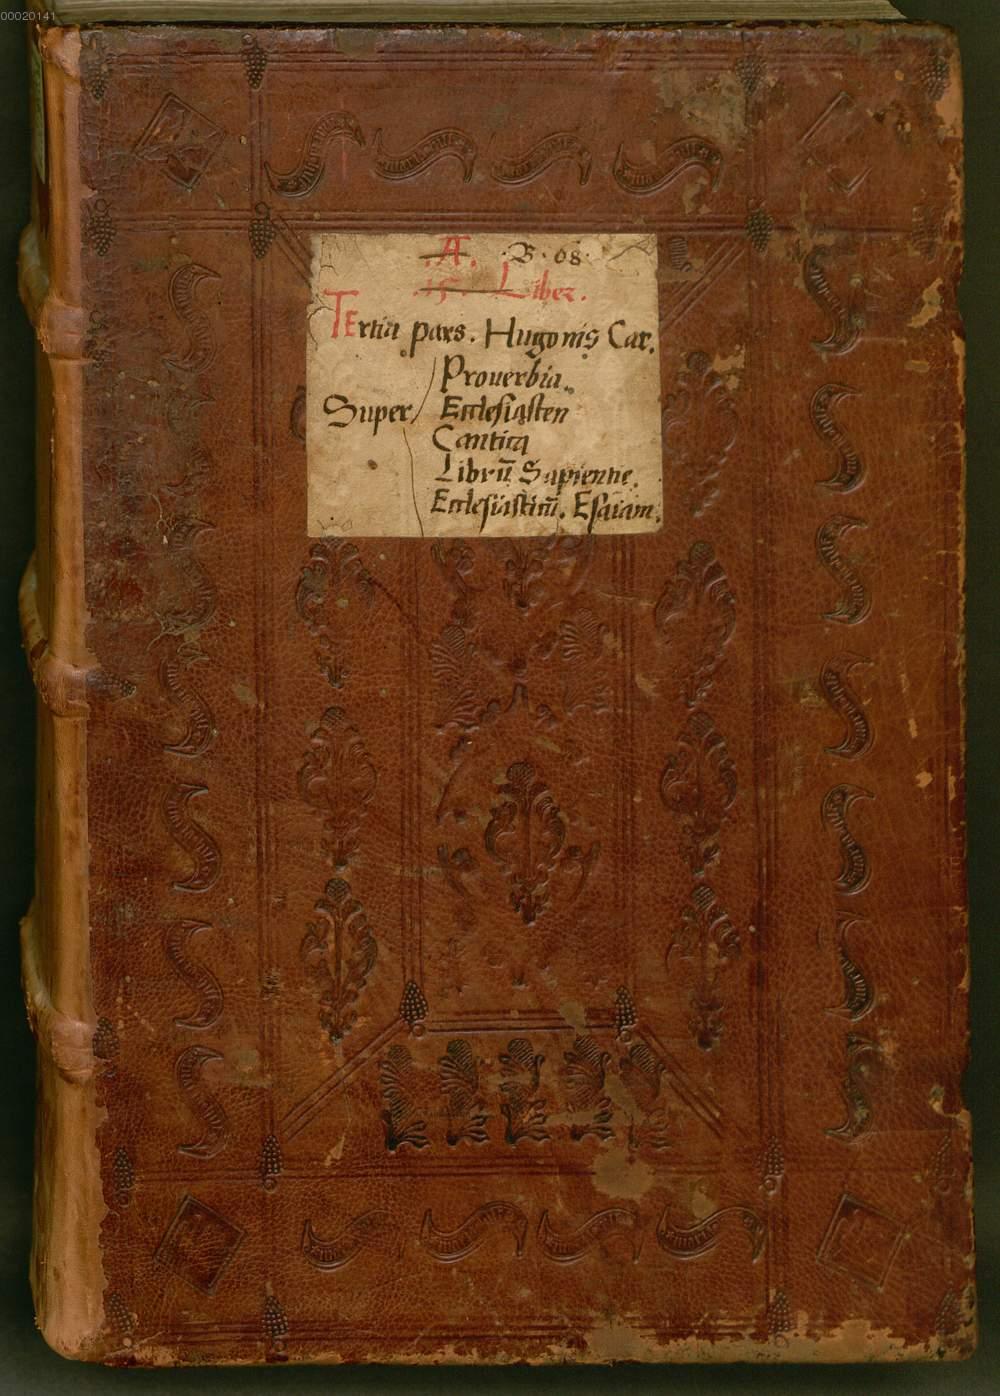 00020141
.A. .B.68.
.15. Liber.
TErtia pars. Hugonis Car.
Prouerbia.
Super Ecclesiasten
Cantica
Librū Sapientie.
Ecclesiasticū. Esaiam.